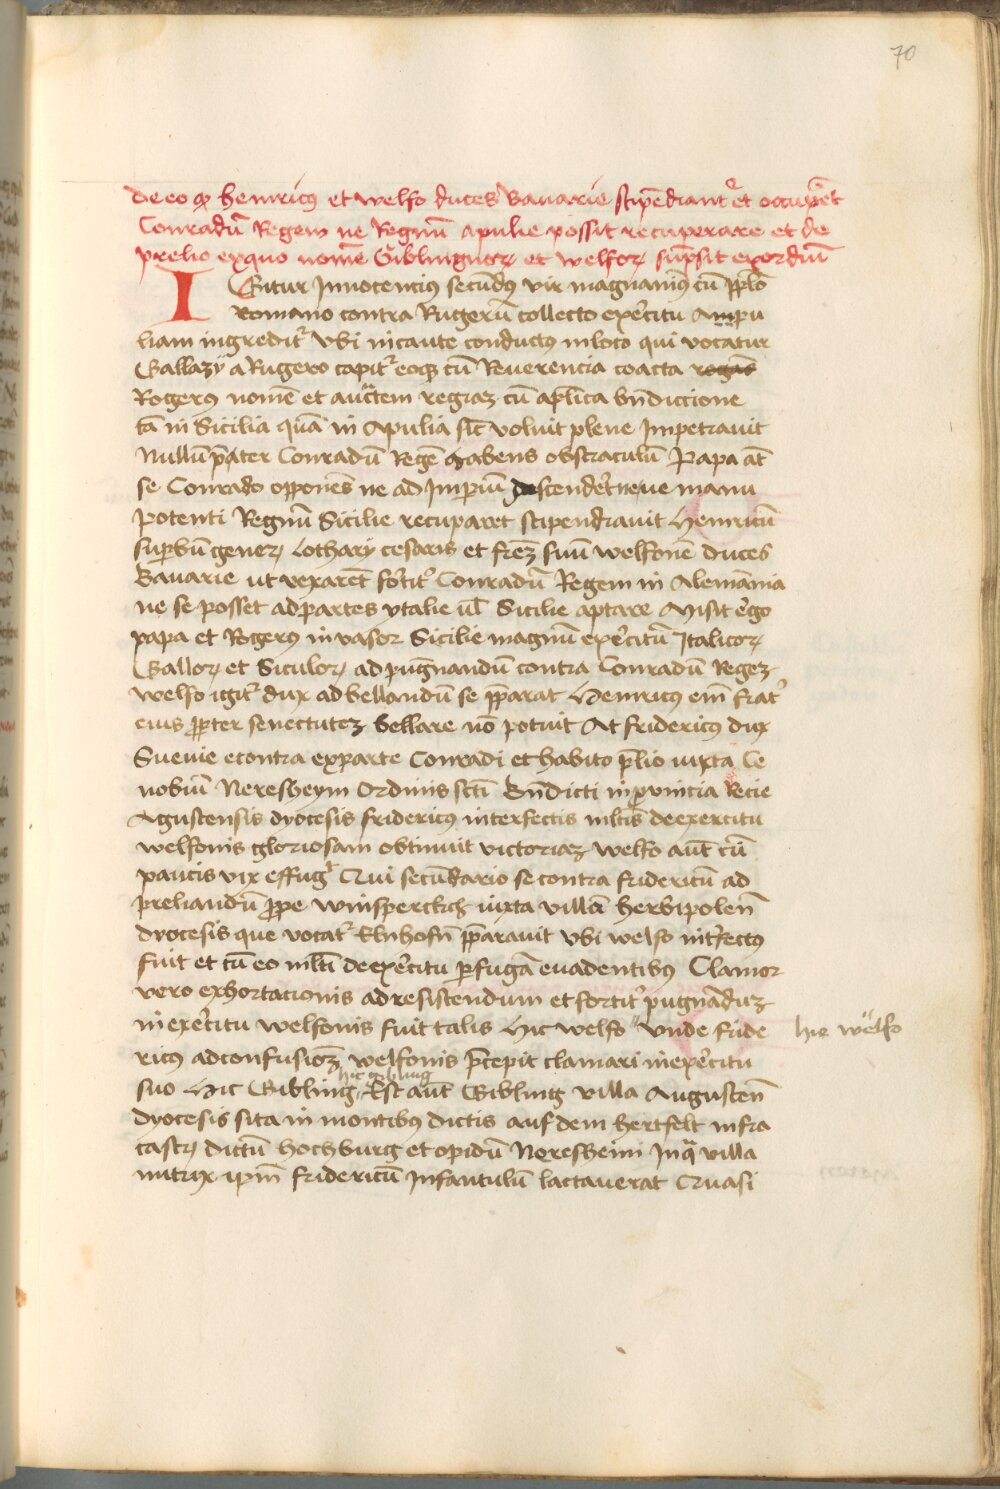 70
de eo qꝫ henricꝰ et welfo duces Bauarie stipēdiant᷑ et occupēt
Conradū Regem ne Regnū apulie possit recuperare et de
prelio exquo nomē Giblinguoꝝ et welfoꝝ sūpsit exordiū
IGitur Innocencius secūdꝯ vir magnanimꝰ cū pplo
Romano contra Rugerū collecto exercitu Ampu
liam ingredit᷑ Vbi incaute conductꝰ in loco qui vocatur
Gallazÿ a Rugero capit᷑ eoqꝫ cū Reuerencia coacta regas
Rogerꝰ nomē et auctem regiaꝫ cū aplica bn̄diccione
tā in Sicilia quā in Apulia sic̄ voluit plene Impetrauit
Nullū p̄ater Conradū Regē habens obstaculū Papa at̄
se Conrado opponēs ne ad Imperiū descenderet neue manu
Potenti Regnū Sicilie recuparet stipendiauit Henricū
supbū geneꝝ Lotharÿ cesaris et frēꝫ suū welfonē duces
Bauarie ut vexarēt fortit᷑ Conradū Regem in Alemānia
ne se posset ad partes ytalie ul̄ Sicilie aptare Misit ergo
papa et Rogerꝰ inuasor Sicilie magnū exercitū Italicoꝝ
Galloꝝ et Siculoꝝ ad pugnandū contra Conradū Regeꝫ
welfo igit᷑ dux ad bellandū se pparat Henricus em̄ frat᷑
eius ꝓpter senectuteꝫ bellare nō potuit At fridericꝰ dux
Sueuie econtra exparte Conradi et habito p̄lio iuxta Ce
nobiū Neresheym Ordinis scti Bn̄dicti in ꝓuincia Recie
Agustensis dyocesis fridericꝰ interfectis mltis de exercitu
welfonis gloriosam obtinuit victoriaꝫ welfo aūt cū
paucis vix effug᷑ Qui secūdario se contra fridericū ad
preliandū ꝓpe winsperckch iuxta villā herbipoleñ
dyocesis que vocat᷑ Elnhofn̄ pparauit Vbi welfo int᷑fectꝰ
fuit et cū eo mlti de exercitu ꝑ fugā euadentibꝰ Clamor
vero exhortacionis ad resistendum et fortit᷑ pugnāduꝫ
in exercitu welfonis fuit talis Hic welfo " Vnde fride
hie wëlfo
ricus ad confusioꝫ welfonis p̄cepit clamari in exercitu
hie gibling
suo Hic Gibling " Est aūt Gibling villa Augusteñ
dyocesis sita in montibus dictis auf dem hertfelt infra
castꝝ dictū hochburg et opidū Nereßheim In qͣ villa
nutrix ipm̄ fridericū Infantulū lactauerat Quasi